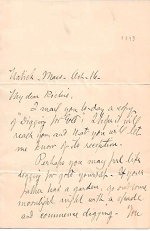 1893
Natick, Mass. Oct. 16.
My dear Richie,
I mail you to-day a copy
of "Digging for Gold". I hope it will
reach you and that you will let
me know of its reception.
Perhaps you may feel like
digging for gold yourself. If your
father has a garden, go out some
moonlight night with a spade
and commence digging. You